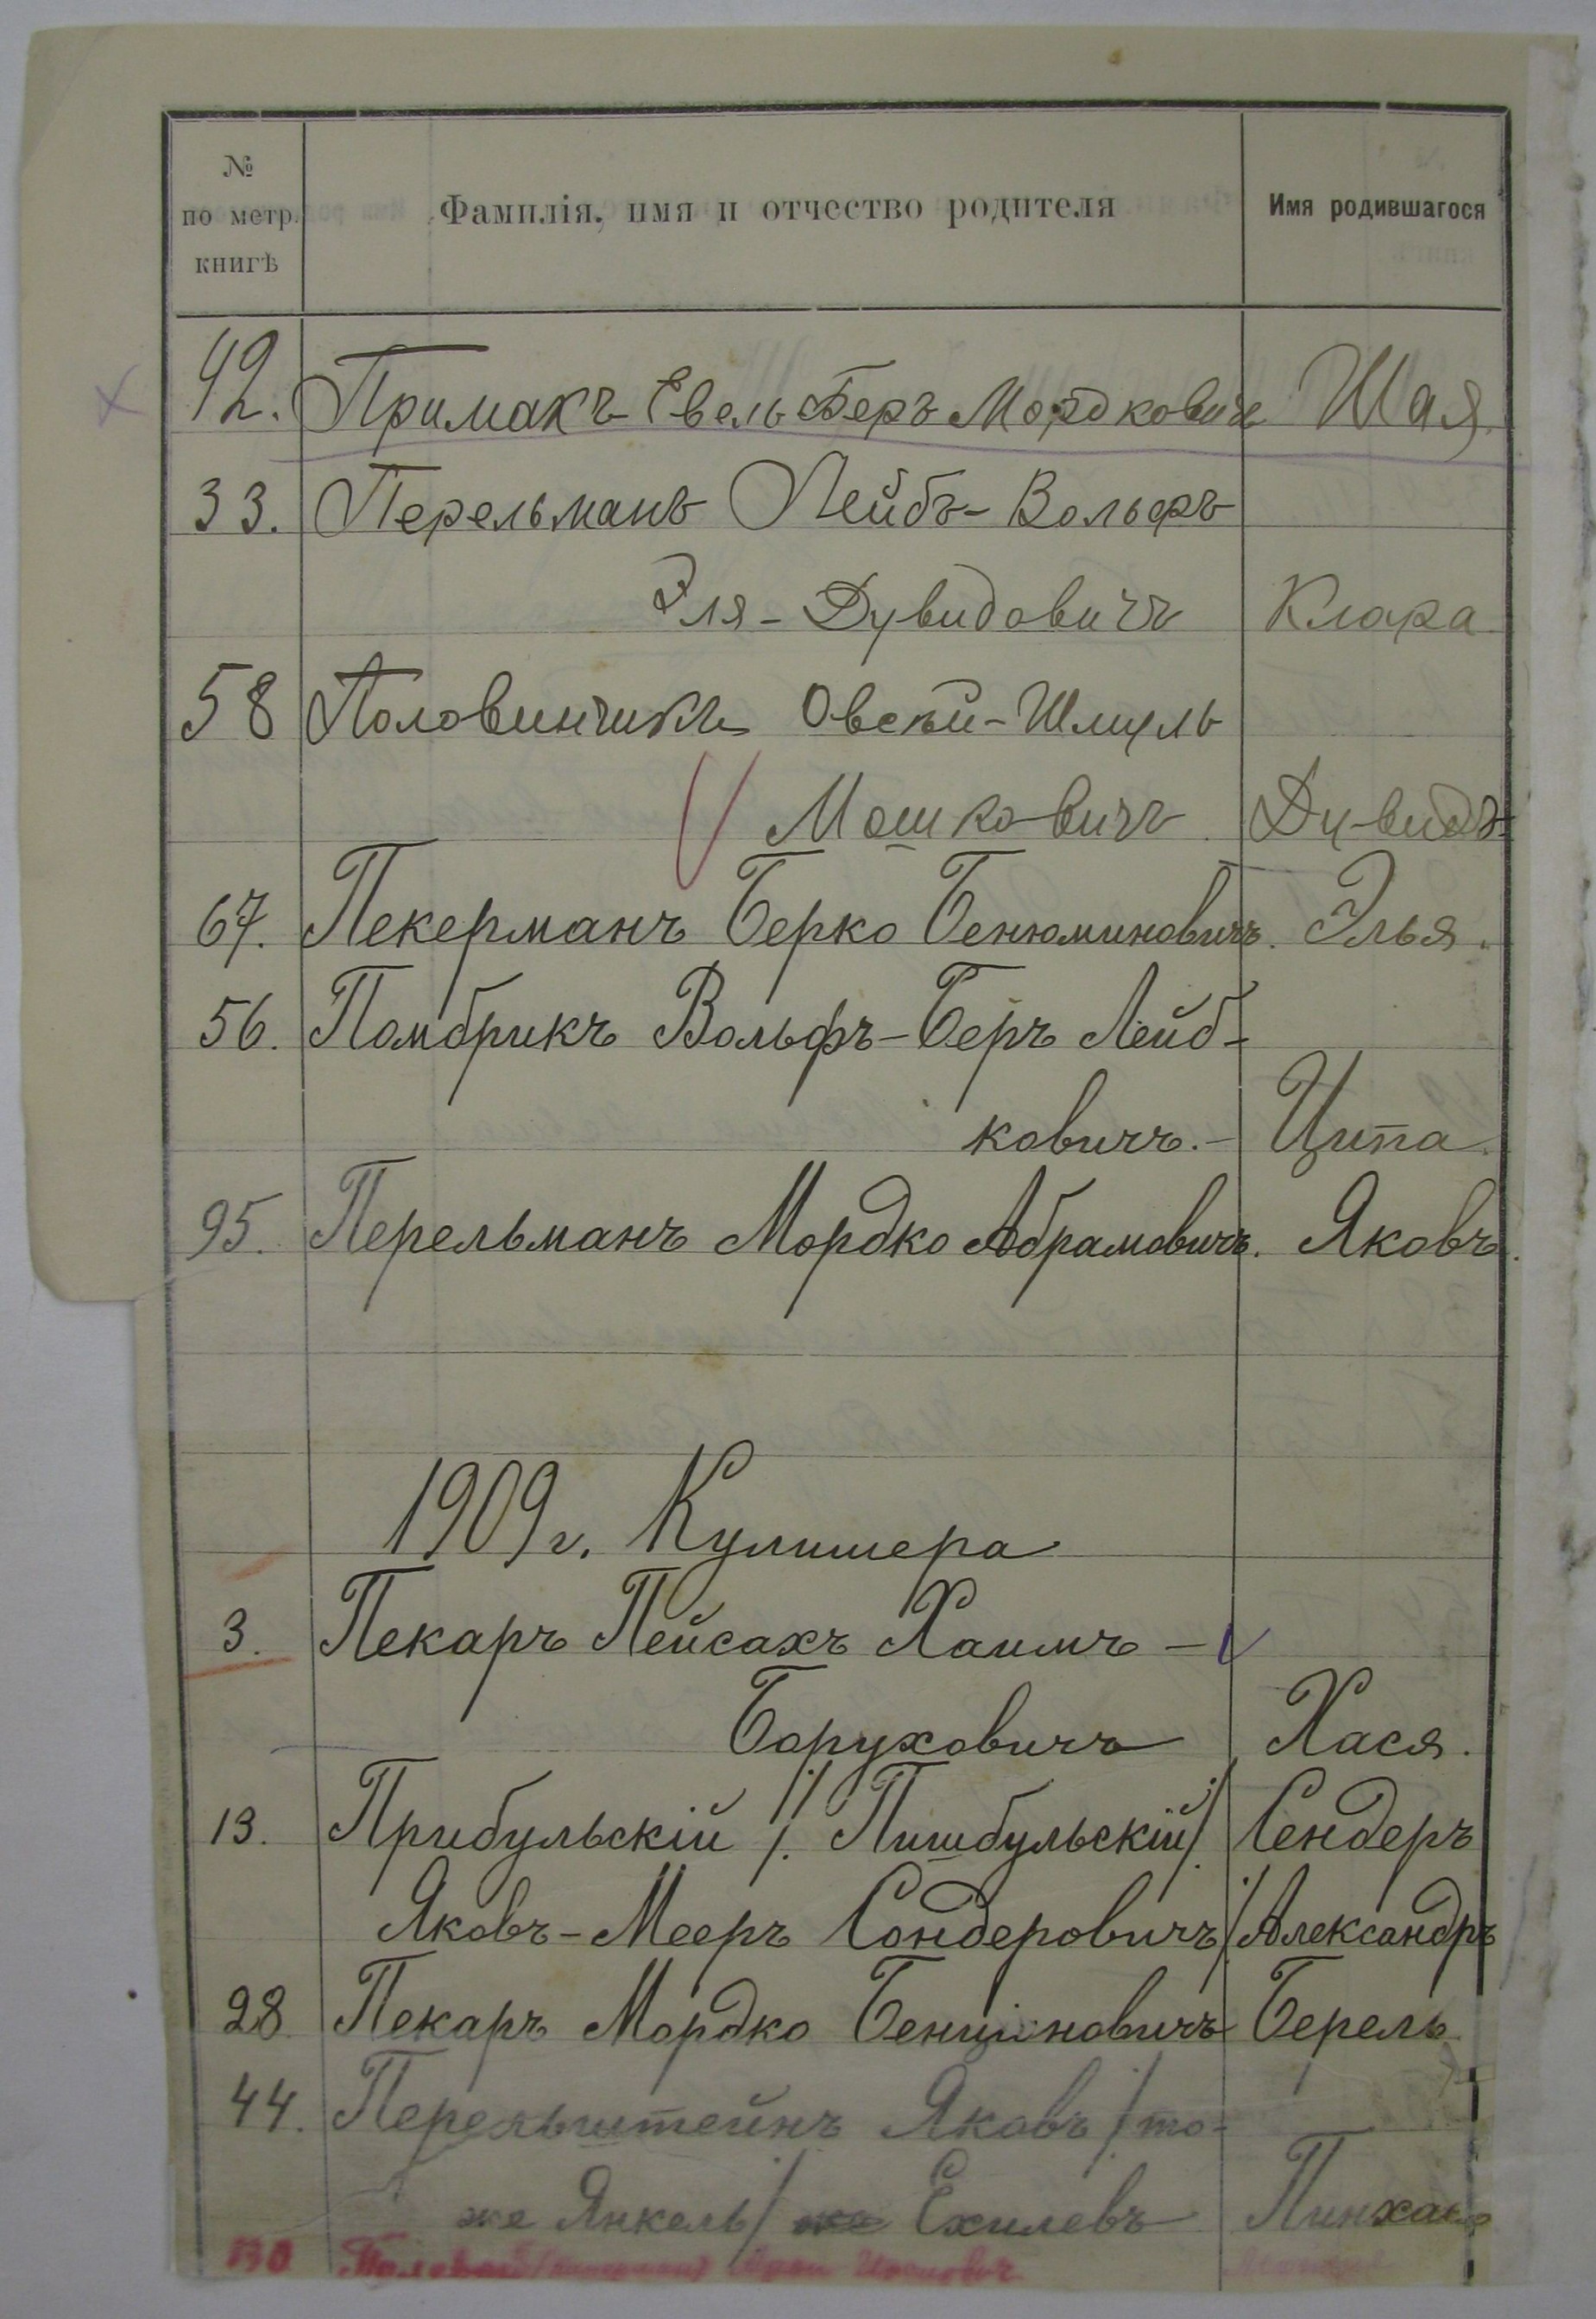 № по метр. книгѣ Фамилія, имя и отчество родителя Имя родившагося
42. Примакъ Евель Беръ Мордковичъ Шая
33. Перельманъ Лейбъ-Вольфъ
Эля-Дувидовичъ Клара
58 Половинчикъ Овсей-Шмуль
Мошковичъ Дувидъ
67. Пекерманъ Берко Бенюминовичъ. Элья.
56. Помбрикъ Вольфъ-Беръ Лейб-
ковичъ.- Цита.
95. Перельманъ Мордко Абрамовичъ. Яковъ.
1909 г. Кулишера
3. Пекаръ Пейсахъ Хаимъ -
Боруховичъ Хася.
13. Прибульскій /. Пишбульскій/. Сендеръ
Яковъ-Мееръ Сондеровичъ /Александръ
28 Пекаръ Мордко Бенціоновичъ Берель
44. Перельштейнъ Яковъ /то-
же Янкель/ Ехилевъ Пинхасъ
130